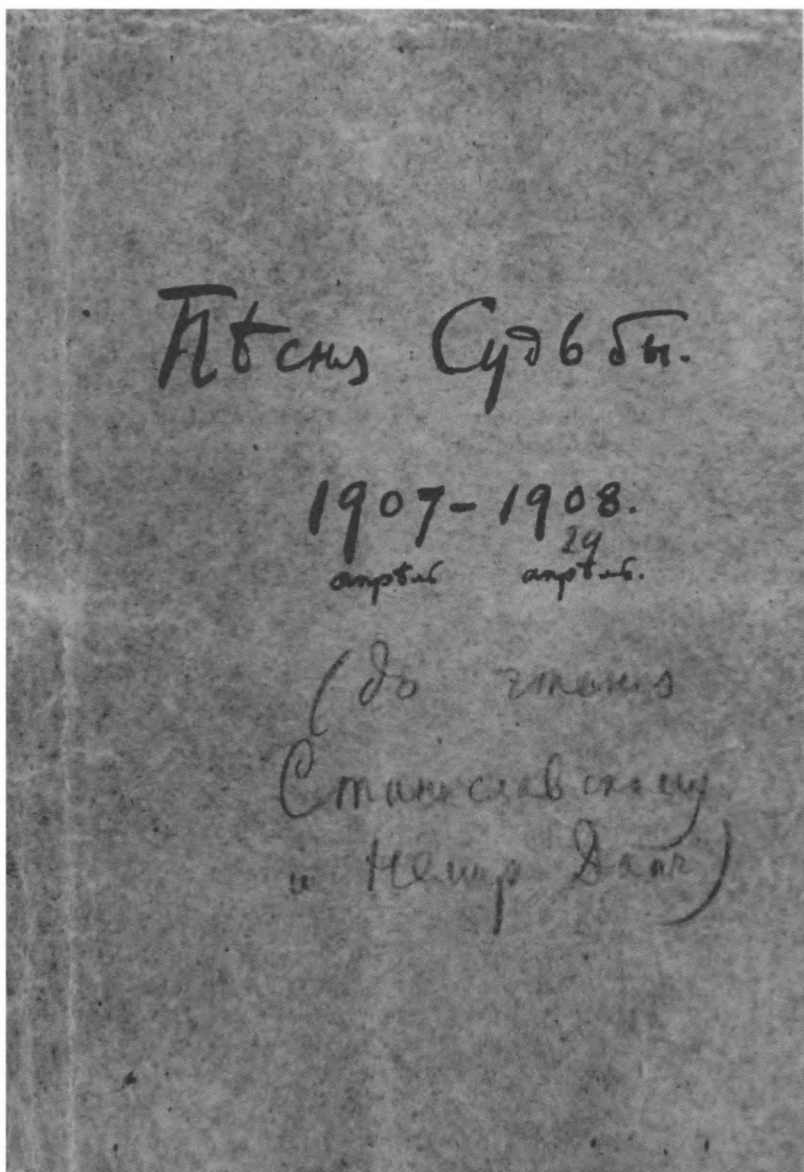 Пѣсня Судьбы.
1907-1908.
29
апрѣль апрѣль.
(до чтенія
Станиславскому
и Немир. Данч)